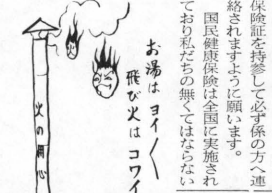 保険証を持参して必ず係の方へ連
絡されますように願います。
国民健康保険は全国に実施され
ており私たちの無くてはならない
お湯はヨイ〳〵
飛び火はコワイ
火の用心